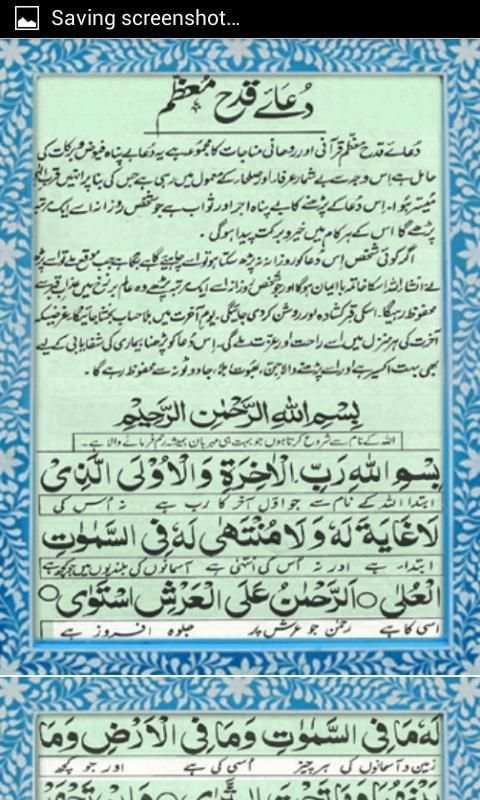 Saving screenshot...
دُعائے قدح معظّم
دُعائے قدح معظّم قرآنی اور روحانی مناجات کا مجموعہ ہے یہ دُعا بے پناہ فیوض و برکات کی
حامل ہے اس وجہ سے بے شمار عرفاء اور صلحاء کے معمول میں رہی ہے جس کی بنا پر انہیں قرب الٰہی
میسّر ہوا۔ اس دُعا کے پڑھنے کا بے پناہ اجر اور ثواب ہے جو شخص روزانہ اسے ایک مرتبہ
پڑھے گا اس کے ہر کام میں خیر و برکت پیدا ہو گی۔
اگر کوئی شخص اس دُعا کو روزانہ نہ پڑھ سکتا ہو تو اسے چاہیئے گاہے بگاہے جب موقع ملے تو اسے پڑھ
لے انشاء اللہ اس کا خاتمہ بالایمان ہو گا اور جو شخص روزانہ اسے ایک مرتبہ پڑھے وہ عالم برزخ میں عذاب قبر سے
محفوظ رہیگا۔ اسکی قبر کشادہ اور روشن کر دی جائیگی۔ یوم آخرت میں بلا حساب بخشا جائیگا غرضیکہ
آخرت کی ہر منزل میں اسے راحت اور عزت ملے گی۔ اس دُعا کو پڑھنا بیماری کی شفایابی کے لیے
بھی بہت اکسیر ہے اور اسے پڑھنے والا جن، بھوت بلا، جادو ٹونہ سے محفوظ رہے گا۔
بِسْمِ اللهِ الرَّحْمٰنِ الرَّحِيْمِ
اللہ کے نام سے شروع کرتا ہوں جو بہت ہی مہربان ہمیشہ رحم فرمانے والا ہے۔
بِسْمِ اللهِ رَبِّ الْاٰخِرَةِ وَالْاُوْلٰى الَّذِيْ
ابتدا اللہ کے نام سے جو اوّل آخر کا رب ہے نہ اُس کی
لَاغَايَةَ لَهٗ وَلَا مُنْتَهٰى لَهٗ فِى السَّمٰوٰتِ
ابتداء ہے اور نہ اُس کی اُنتہٰی ہے آسمانوں کی بلندیوں میں جو کچھ ہے
الْعُلٰى ○ اَلرَّحْمٰنُ عَلَى الْعَرْشِ اسْتَوٰى ○
اسی کا ہے رحمٰن جو عرش پر جلوہ افروز ہے
لَهٗ مَا فِى السَّمٰوٰتِ وَمَا فِى الْاَرْضِ وَمَا
زمین و آسمانوں کی ہر چیز اُسی کی ہے اور جو کچھ